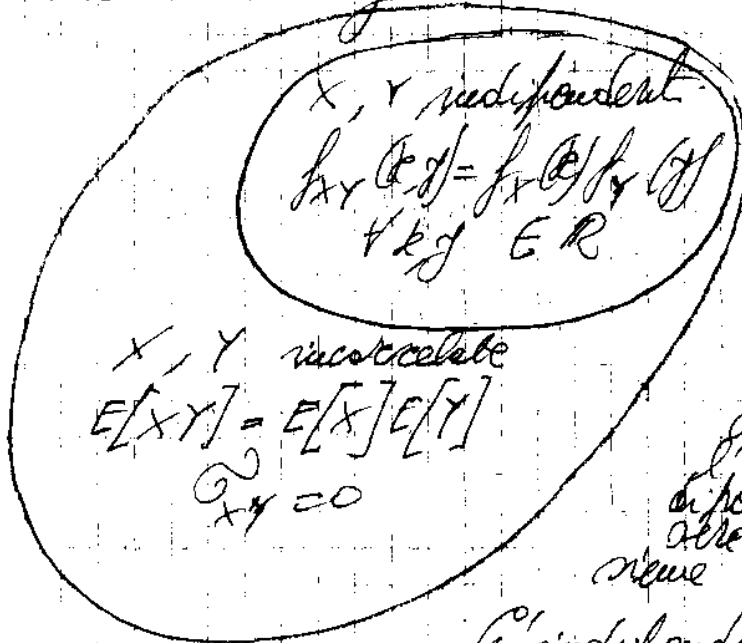 X, Y indipendenti
f_XY (x,y) = f_X (x) f_Y (y)
∀ x,y ∈ R
X, Y incorrelate
E[XY] = E[X] E[Y]
σ_XY = 0